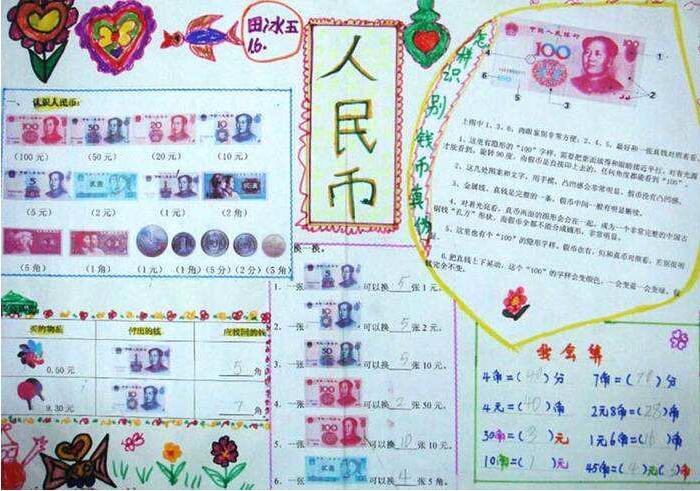 田冰五
16.
人民币
怎样识别钱币真伪
一、认识人民币:
(100元) (50元) (20元) (10元)
(5元) (2元) (1元) (2角)
(5角) (1角) (1元) (1角) (5分) (2分) (5角)
买的物品 付出的钱 应找回的钱
0.50元 5角
9.30元 7角
换一换。
1. 一张 可以换 5 张1元。
2. 一张 可以换 5 张2元。
3. 一张 可以换 5 张10元。
4. 一张 可以换 2 张50元。
5. 一张 可以换 10 张10元。
6. 一张 可以换 4 张5角。
中国人民银行
100
1
2
3
4
5
6
上图中1、3、6,肉眼鉴别非常方便;2、4、5,最好和一张真钞对照着看。
1、这是有隐形的“100”字样,需要把票面放得和眼睛接近平行,对着光源
才能看到,旋转90度,而假币是直接印上去的,任何角度都能看到“100”。
2、这几处用凹和文字,用手摸,凸凹感会非常明显,假币没有凸凹感。
3、金属线,真钱是完整的一条,假币中间一般有明显断续。
4、对着光亮看,真币两面的图形会合在一起,成为一个非常完整的中国古
铜钱“孔方”形状,而假钱全都不能合成圆形,非常明显。
5、这里也有个“100”的隐形字样,假币亦有,但和真币对照看,差别很明
6、把真钱上下晃动,这个“100”的字样会变颜色,一会变蓝一会变绿,假
我会算
4角=(40)分 7角=(70)分
4元=(40)角 2元8角=(28)角
30角=(3)元 1元6角=(16)角
10角=(1)元 45角=(4)元(5)角